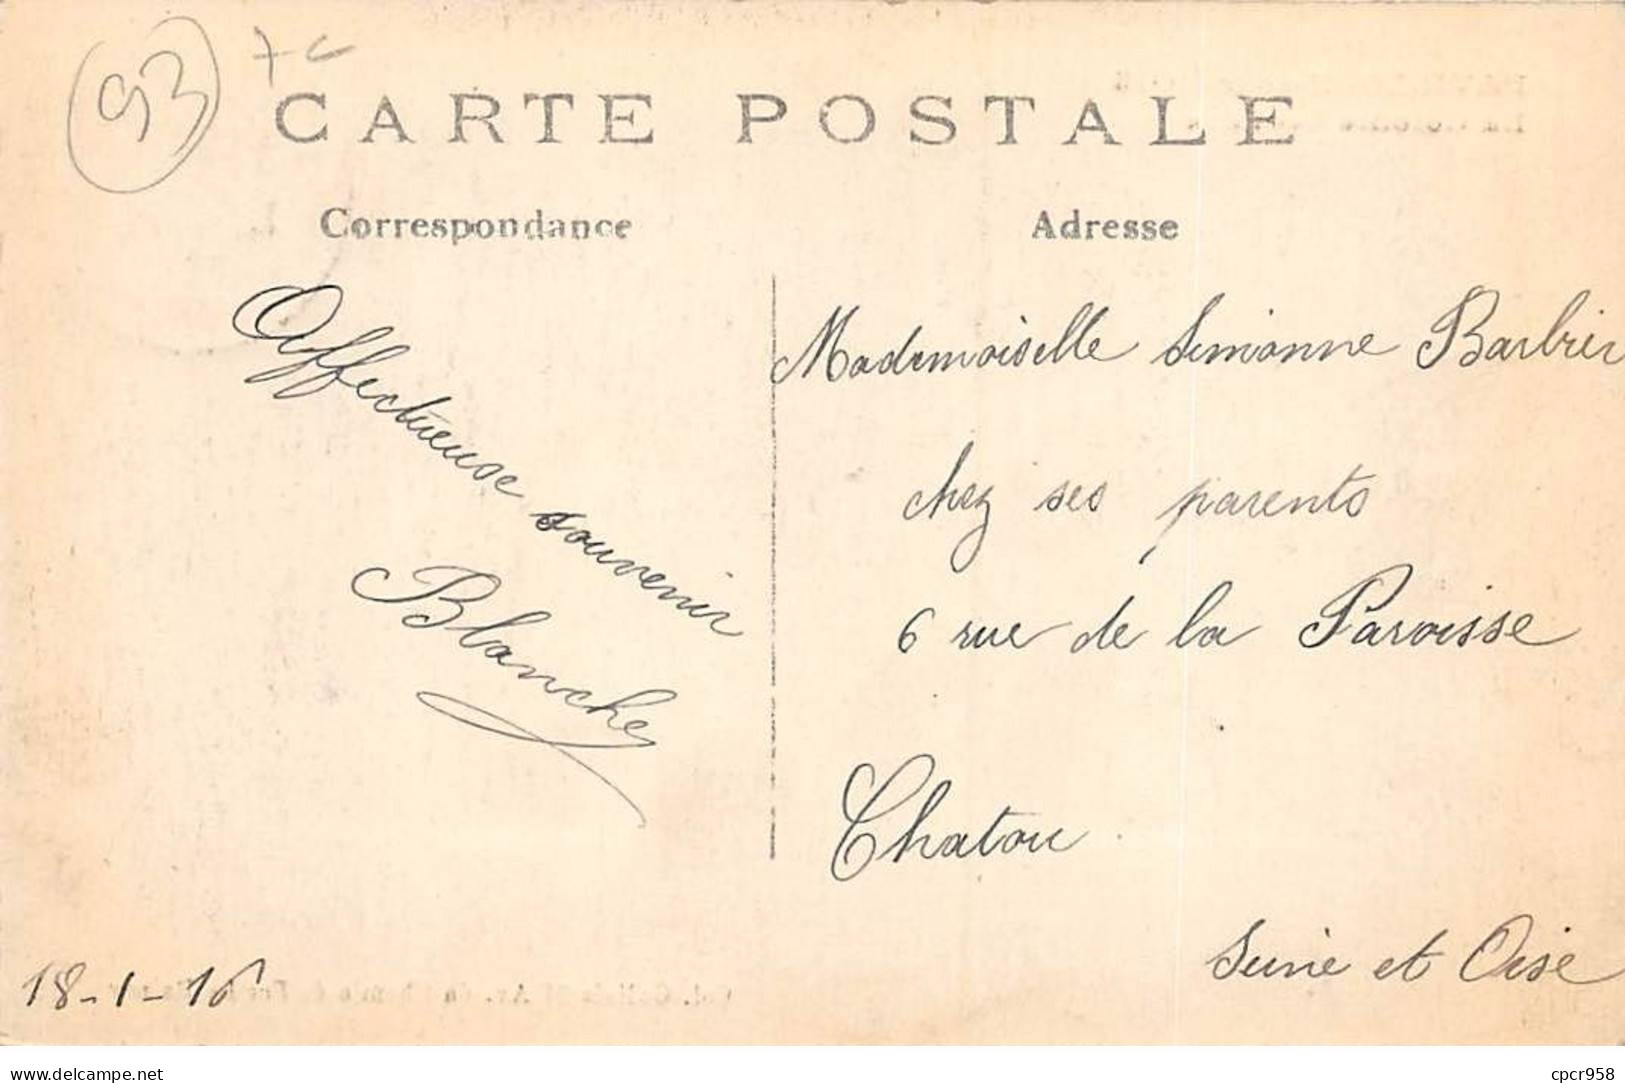 93
7c
CARTE POSTALE
Correspondance
Adresse
Affectueuse souvenir
Blanche
18-1-16
Mademoiselle Simonne Barbier
chez ses parents
6 rue de la Paroisse
Chatou
Seine et Oise
www.delcampe.net
cpcr958